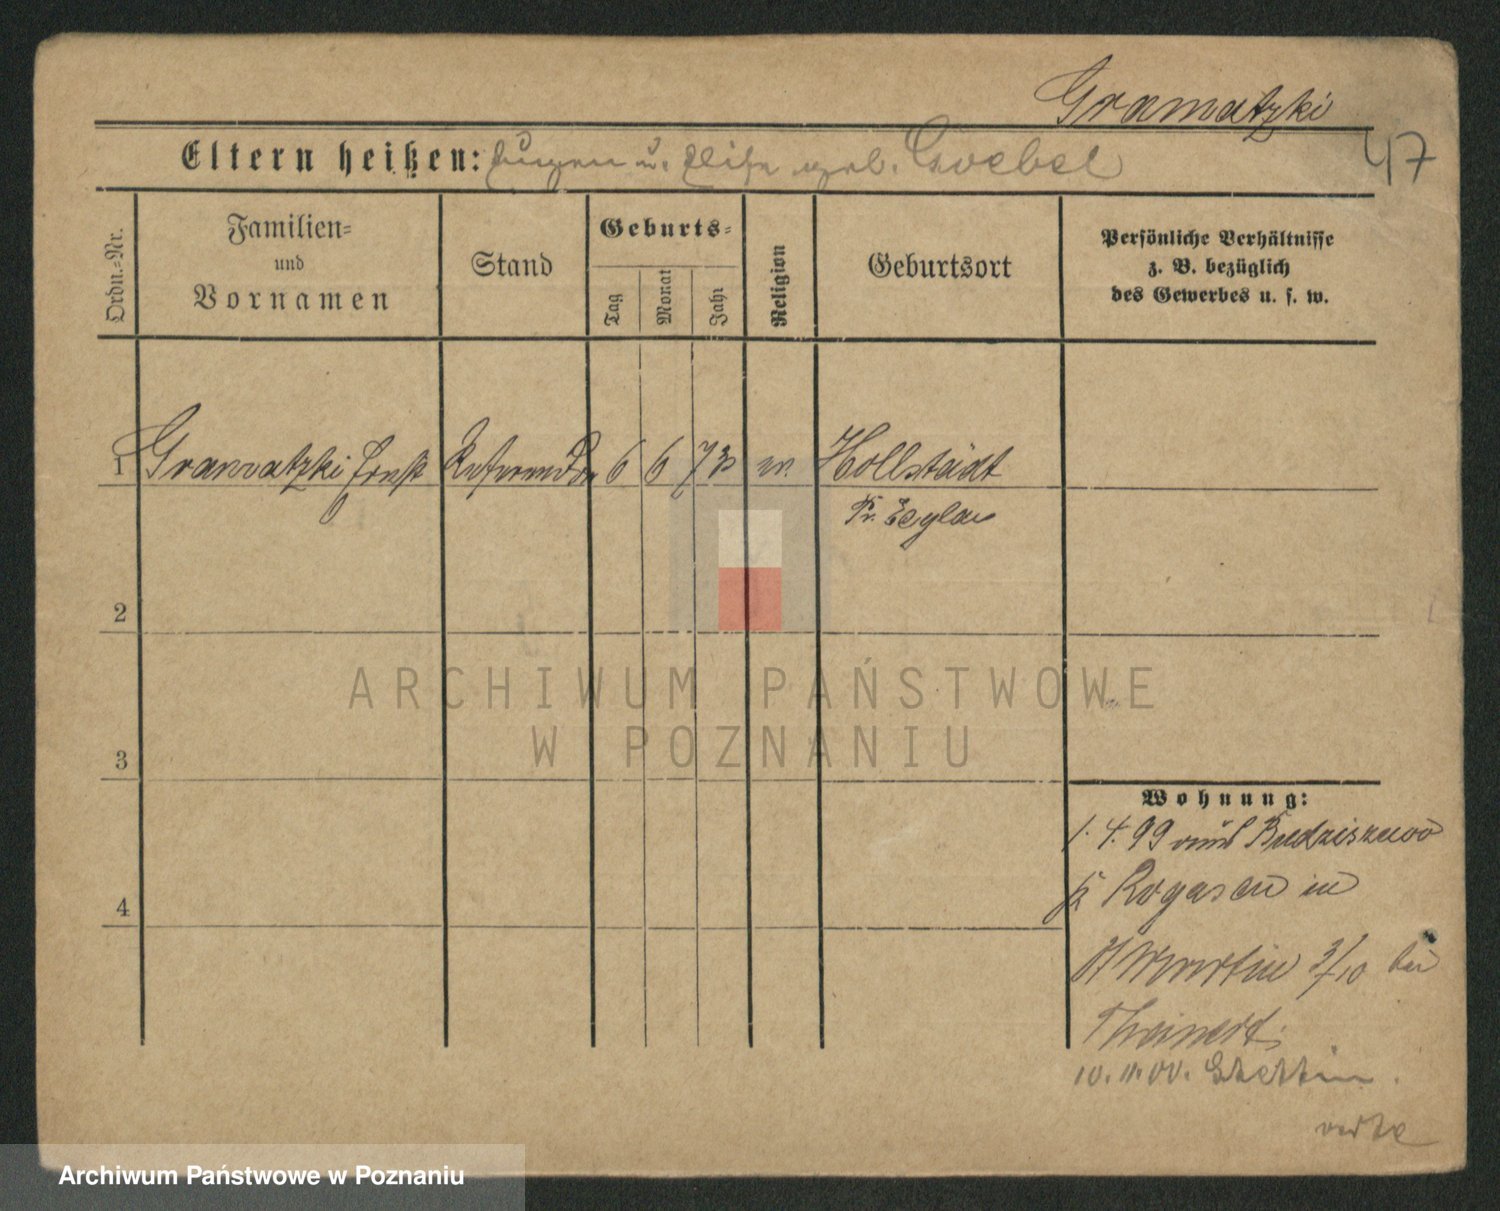 Gramatzki
47
Eltern heißen: Eugen u. Elise geb. Goebel
Ordn.-Nr.
Familien-
und
Vornamen
Stand
Geburts-
Tag
Monat
Jahr
Religion
Geburtsort
Persönliche Verhältnisse
z. B. bezüglich
des Gewerbes u. s. w.
1 Gramatzki Ernst Referendar 6 6 73 ev. Hollstädt
Pr. Eylau
2
3
4
ARCHIWUM PAŃSTWOWE
W POZNANIU
Wohnung:
1. 4. 99 Budziszewo
Rogasen in
St Martin 3/10 bei
Theinert.
10. 11. 00. Stettin.
Archiwum Państwowe w Poznaniu